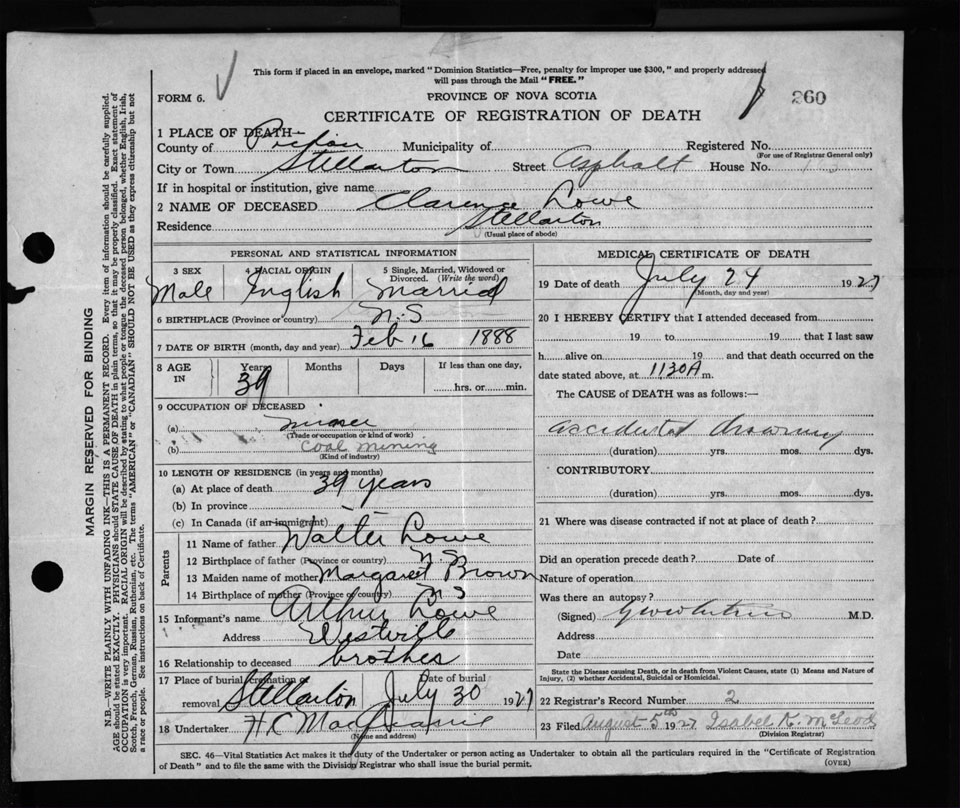 This form if placed in an envelope, marked "Dominion Statistics—Free, penalty for improper use $300," and properly addressed
will pass through the Mail "FREE."
FORM 6. PROVINCE OF NOVA SCOTIA 260
CERTIFICATE OF REGISTRATION OF DEATH
1 PLACE OF DEATH—
County of Pictou Municipality of Registered No.
(For use of Registrar General only)
City or Town Stellarton Street Asphalt House No.
If in hospital or institution, give name
2 NAME OF DECEASED Clarence Lowe
Residence Stellarton
(Usual place of abode)
PERSONAL AND STATISTICAL INFORMATION
3 SEX 4 RACIAL ORIGIN 5 Single, Married, Widowed or
Divorced. (Write the word)
Male English Married
6 BIRTHPLACE (Province or country) N.S
7 DATE OF BIRTH (month, day and year) Feb 16 1888
8 AGE IN Years Months Days If less than one day,
39 hrs. or min.
9 OCCUPATION OF DECEASED
(a) miner
(Trade or occupation or kind of work)
(b) Coal mining
(Kind of industry)
10 LENGTH OF RESIDENCE (in years and months)
(a) At place of death 39 years
(b) In province
(c) In Canada (if an immigrant)
Parents
11 Name of father Walter Lowe
12 Birthplace of father (Province or country) N.S.
13 Maiden name of mother Margaret Brown
14 Birthplace of mother (Province or country) N S
15 Informant's name Arthur Lowe
Address Westville
16 Relationship to deceased brother
17 Place of burial, cremation or Date of burial
removal Stellarton July 30 1927
18 Undertaker H.C
(Name and address)
MEDICAL CERTIFICATE OF DEATH
19 Date of death July 24 1927
(Month, day and year)
20 I HEREBY CERTIFY that I attended deceased from
19 to 19 that I last saw
h alive on 19 and that death occurred on
date stated above, at 1130A m.
The CAUSE of DEATH was as follows:—
accidental drowning
(duration) yrs. mos. dys.
CONTRIBUTORY
(duration) yrs. mos. dys.
21 Where was disease contracted if not at place of death?
Did an operation precede death? Date of
Nature of operation
Was there an autopsy?
(Signed) M.D.
Address
Date
State the Disease causing Death, or in death from Violent Causes, state (1) Means and Nature of
Injury, (2) whether Accidental, Suicidal or Homicidal.
22 Registrar's Record Number 2
23 Filed August 5th 1927 Isabel K. McLeod
(Division Registrar)
SEC. 46—Vital Statistics Act makes it the duty of the Undertaker or person acting as Undertaker to obtain all the particulars required in the "Certificate of Registration
of Death" and to file the same with the Division Registrar who shall issue the burial permit.
(OVER)
MARGIN RESERVED FOR BINDING
N.B.—WRITE PLAINLY WITH UNFADING INK—THIS IS A PERMANENT RECORD. Every item of information should be carefully supplied.
AGE should be stated EXACTLY. PHYSICIANS should STATE CAUSE OF DEATH in plain terms, so that it may be properly classified. Exact statement of
OCCUPATION is very important. RACIAL ORIGIN will be described by stating to what people or tongue the deceased person belonged, whether English, Irish,
Scotch, French, German, Russian, Ruthenian, etc. The terms "AMERICAN" or "CANADIAN" SHOULD NOT BE USED as they express citizenship but not
a race or people. See instructions on back of Certificate.